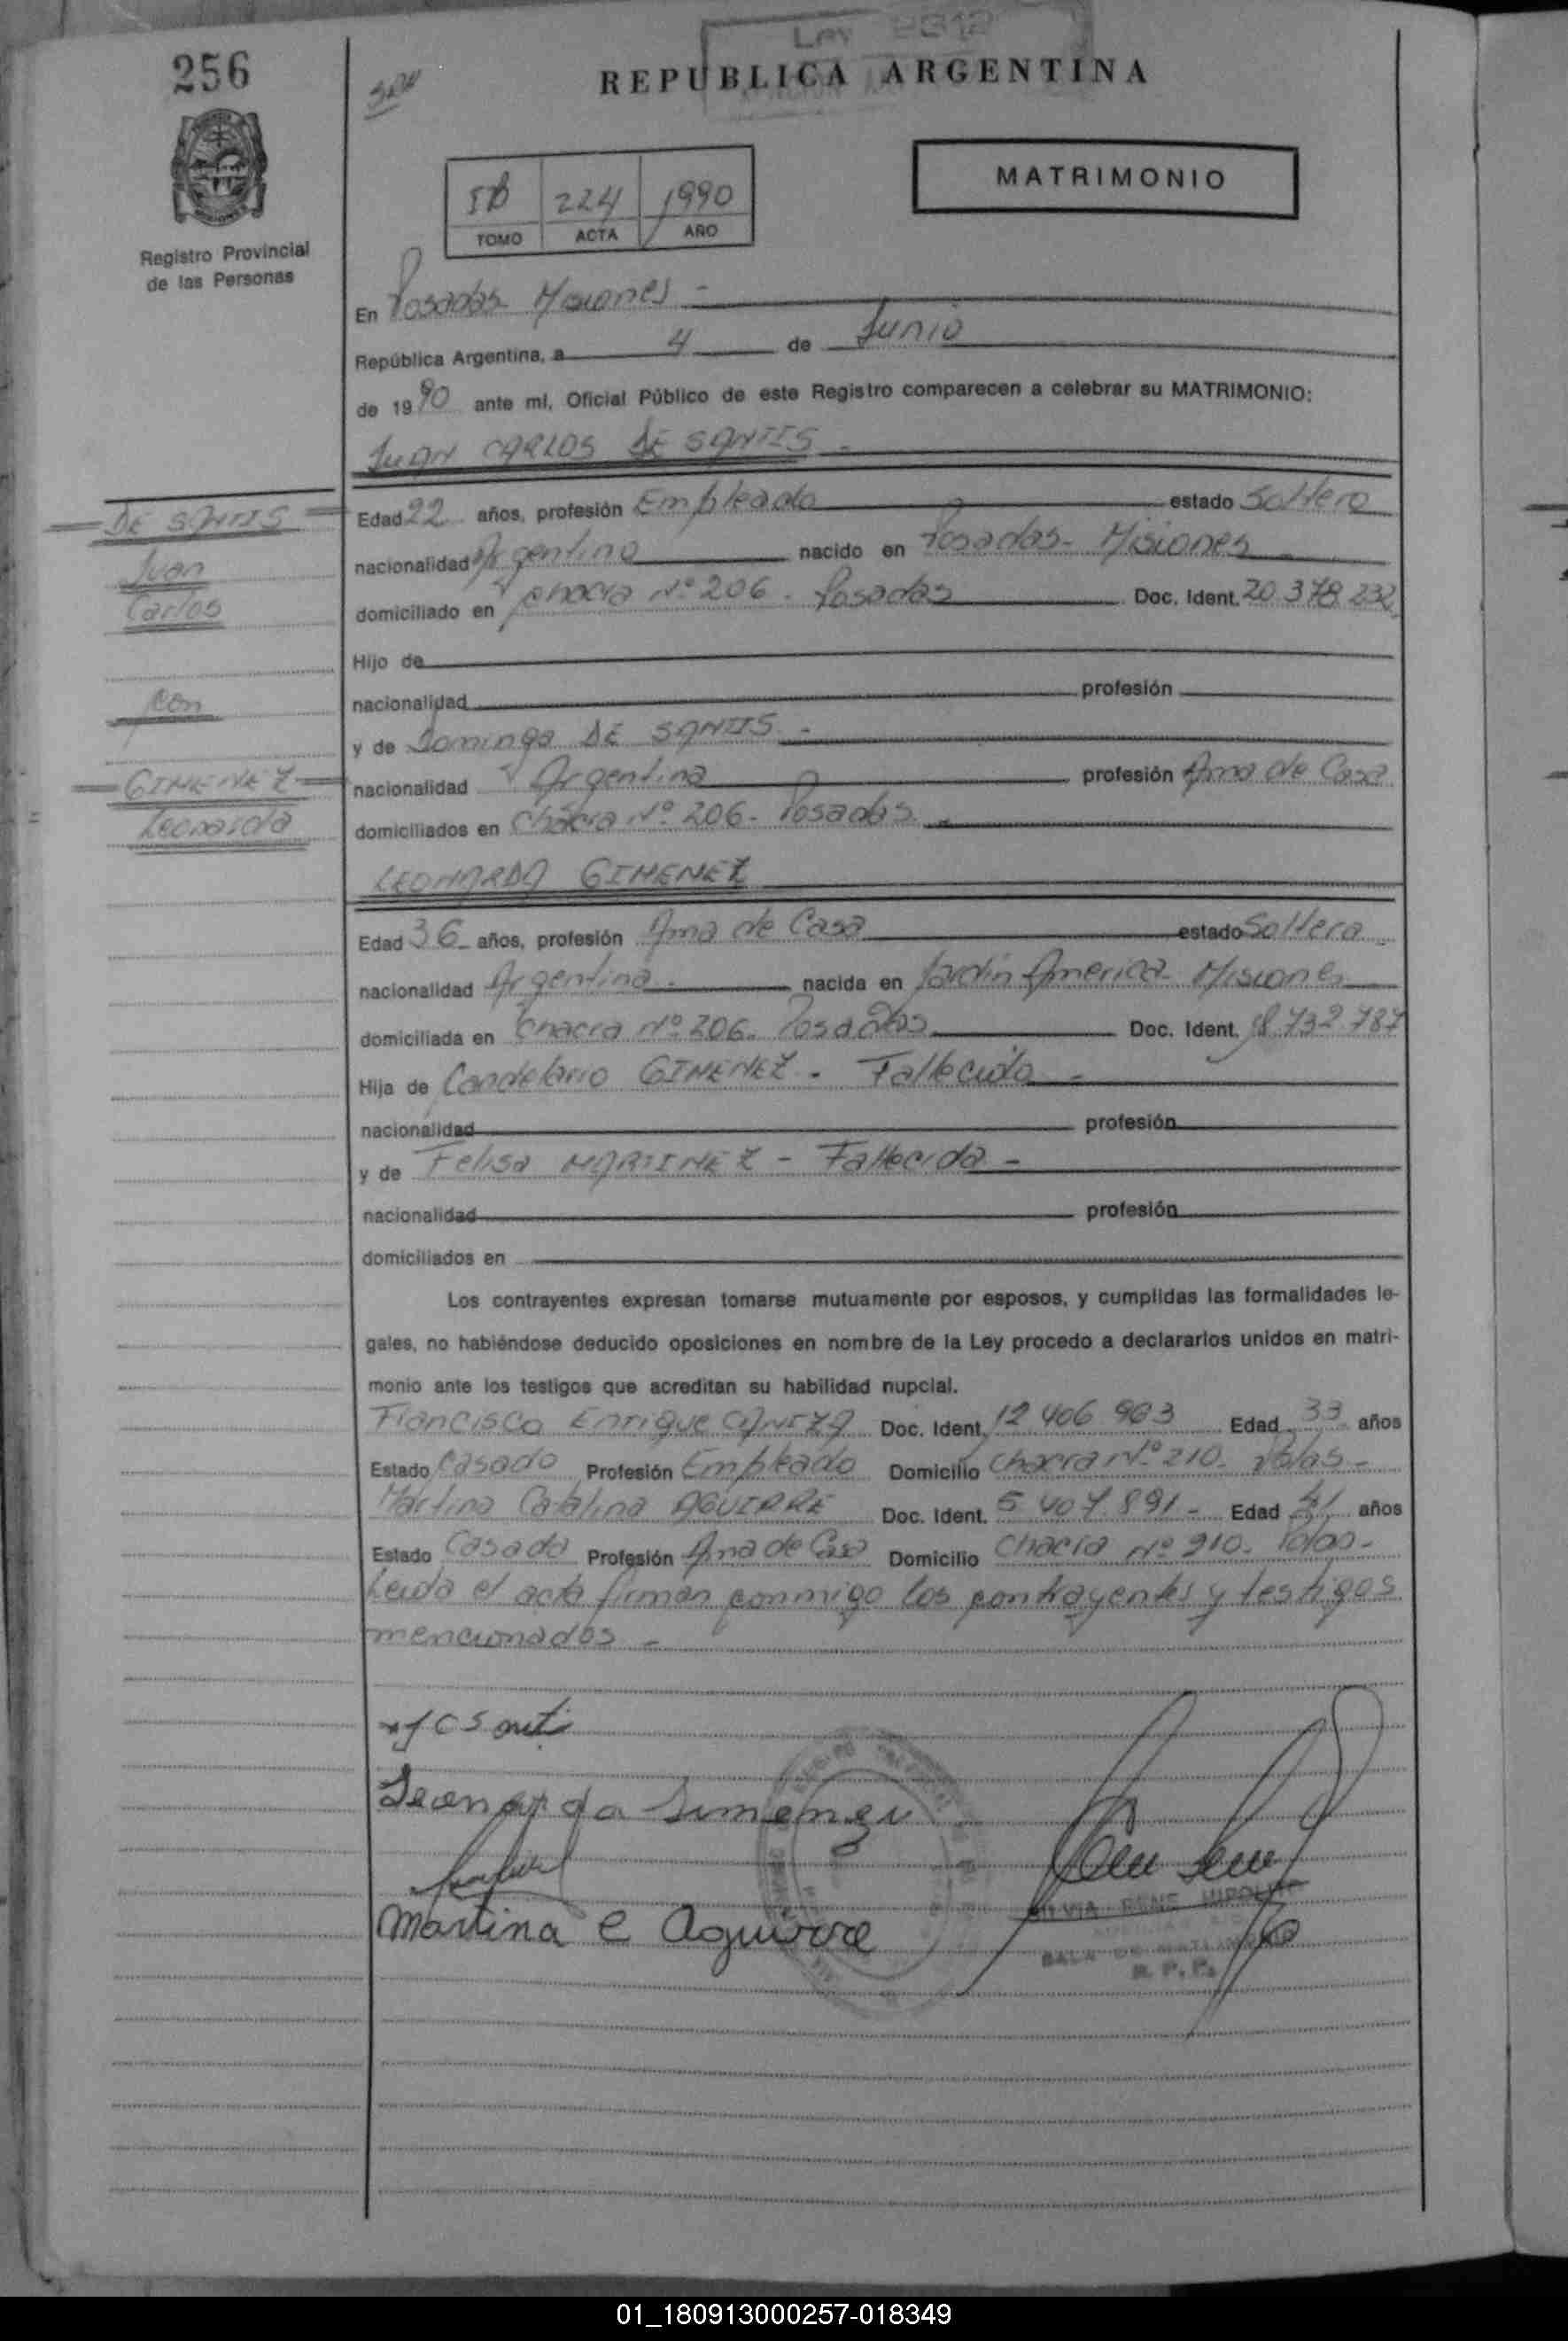 256
Ley 2312
REPUBLICA ARGENTINA
MATRIMONIO
224 1990
TOMO ACTA AÑO
Registro Provincial
de las Personas
En Posadas Misiones -
República Argentina, a 4 de Junio
de 1990 ante mí, Oficial Público de este Registro comparecen a celebrar su MATRIMONIO:
JUAN CARLOS DE SANTIS -
DE SANTIS
Juan
Carlos
con
GIMENEZ
Leonarda
Edad 22 años, profesión Empleado estado Soltero
nacionalidad Argentino nacido en Posadas - Misiones -
domiciliado en Chacra Nº 206 - Posadas Doc. Ident. 20.378.232
Hijo de
nacionalidad profesión
y de Dominga DE SANTIS -
nacionalidad Argentina profesión Ama de Casa
domiciliados en Chacra Nº 206 - Posadas -
LEONARDA GIMENEZ
Edad 36 años, profesión Ama de Casa estado Soltera -
nacionalidad Argentina - nacida en Jardín América - Misiones
domiciliada en Chacra Nº 206 - Posadas Doc. Ident. 18.732.787
Hija de Candelario GIMENEZ - Fallecido -
nacionalidad profesión
y de Felisa MARTINEZ - Fallecida -
nacionalidad profesión
domiciliados en
Los contrayentes expresan tomarse mutuamente por esposos, y cumplidas las formalidades le-
gales, no habiéndose deducido oposiciones en nombre de la Ley procedo a declararlos unidos en matri-
monio ante los testigos que acreditan su habilidad nupcial.
Francisco Enrique Doc. Ident. 12.406.963 Edad 33 años
Estado Casado Profesión Empleado Domicilio Chacra Nº 210 - Pdas -
Martina Catalina AGUIRRE Doc. Ident. 5.407.891 - Edad 41 años
Estado Casada Profesión Ama de Casa Domicilio Chacra Nº 210 - Pdas -
Leida el acta firman conmigo los contrayentes y testigos
mencionados -
Leonarda Jimenez
Martina C Aguirre
SILVIA RENE HIPOLITO
SALA DE MATRIMONIO
R. P. P.
01_180913000257-018349